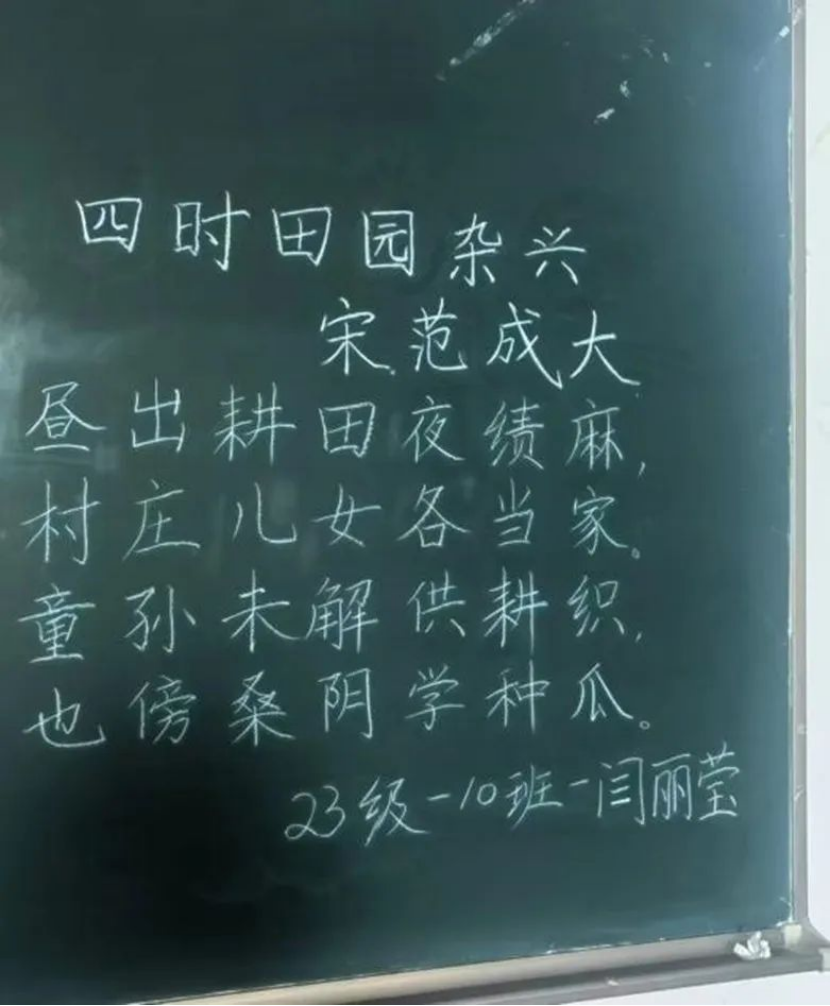 四时田园杂兴
宋.范成大
昼出耕田夜绩麻,
村庄儿女各当家。
童孙未解供耕织,
也傍桑阴学种瓜。
23级-10班-闫丽莹